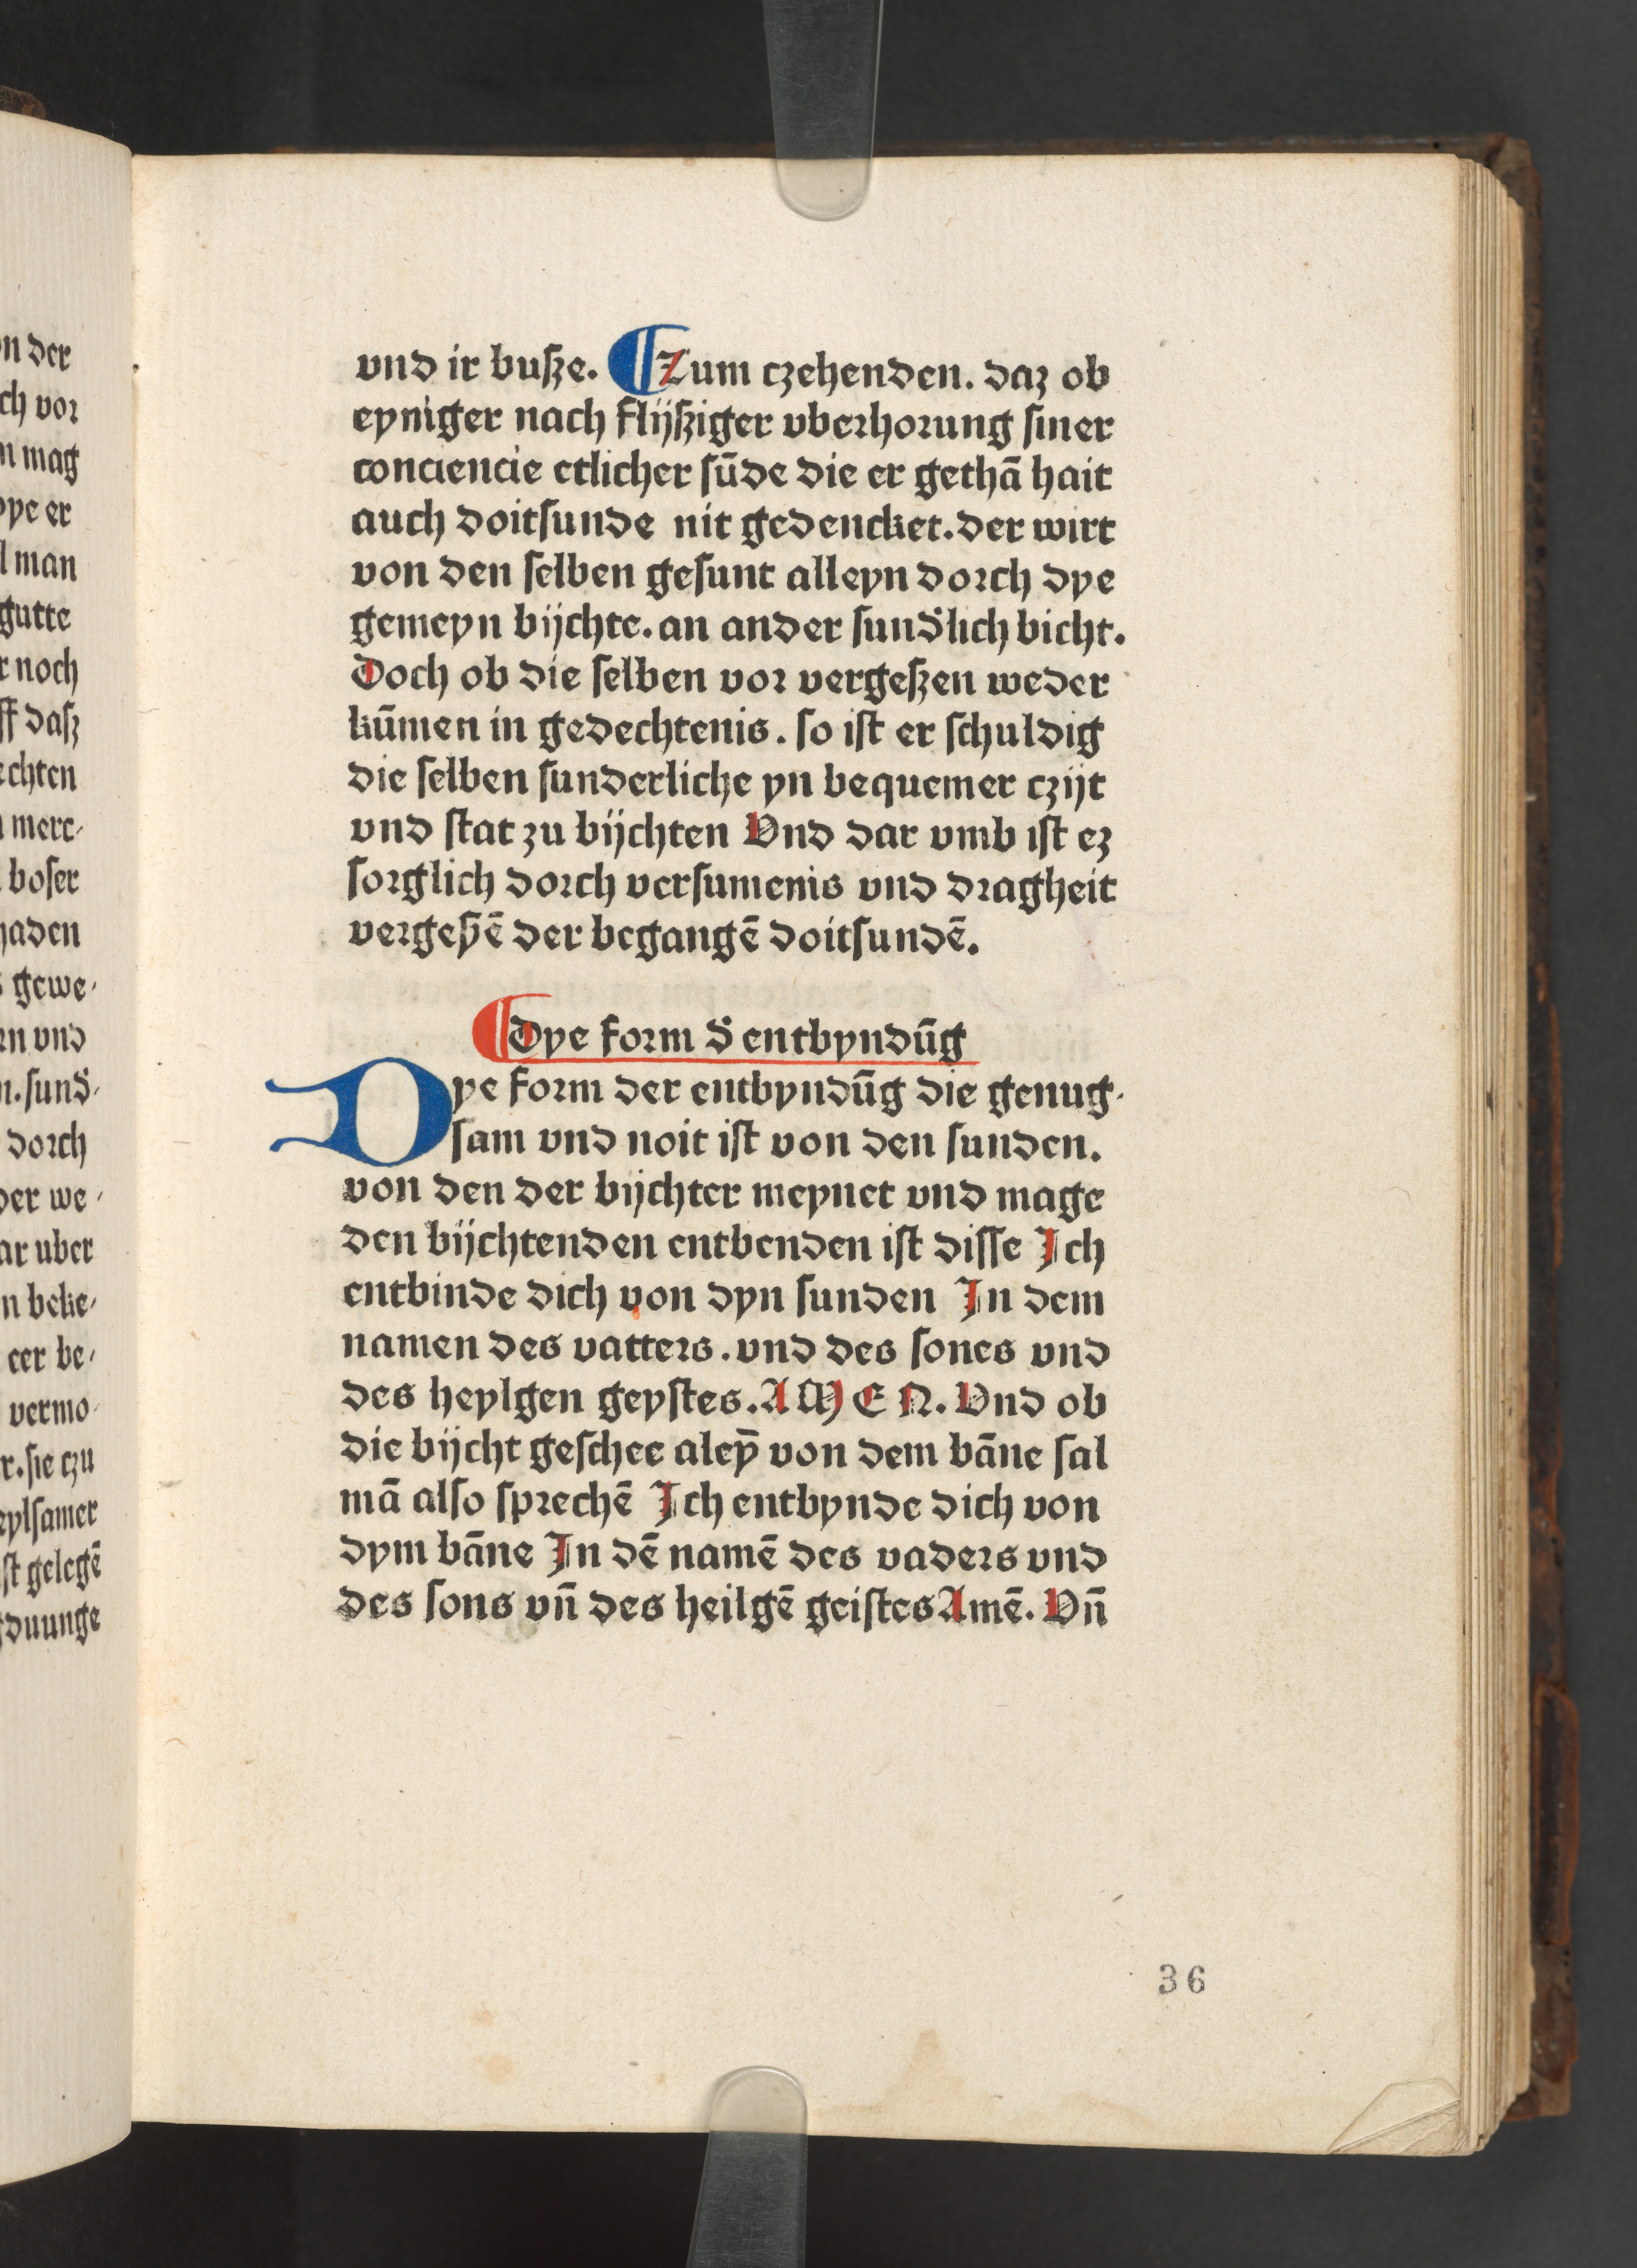 vnd ir busze. ¶ Zum czehenden. daz ob
eyniger nach flijsziger vberhorung siner
conciencie etlicher sūde die er gethā hait
auch doitsunde nit gedencket. der wirt
von den selben gesunt alleyn dorch dye
gemeyn bijchte. an ander sundlich bicht.
Doch ob die selben vor vergeszen weder
kūmen in gedechtenis. so ist er schuldig
die selben sunderliche yn bequemer czijt
vnd stat zu bijchten Vnd dar vmb ist ez
sorglich dorch versumenis vnd dragheit
vergeszē der begangē doitsundē.
¶ Dye form d̕ entbyndūg
Dye form der entbyndūg die genug-
sam vnd noit ist von den sunden.
von den der bijchter meynet vnd mage
den bijchtenden entbenden ist disse Ich
entbinde dich von dyn sunden In dem
namen des vatters. vnd des sones vnd
des heylgen geystes. AMEN. Vnd ob
die bijcht geschee aleȳ von dem bāne sal
mā also sprechē Ich entbynde dich von
dym bāne In dē namē des vaders vnd
des sons vn̄ des heilgē geistes Amē. Vn̄
36
n der
ch vor
mag
er
man
gutte
noch
ff dasz
echten
merc-
boser
haden
gewe-
vnd
sund̕-
dorch
der we-
ar uber
n beke-
cer be-
vermo-
r. sie czu
eylsamer
st gelegē
duunge